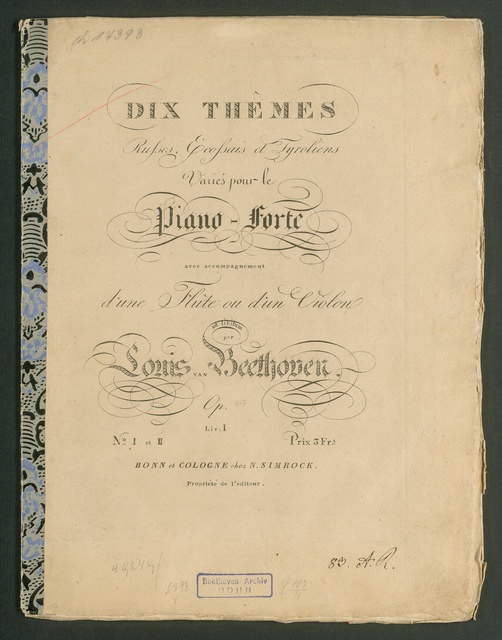 ch 17393
DIX THÈMES
Rufses, Ecofsais et Tyroliens
Variés pour le
Piano-Forte
avec accompagnement
d'une Flûte ou d'un Violon
ad libitum
par
Louis VAN Beethoven.
Op.
Liv. I
No. I et II
Prix 3 Frs
BONN et COLOGNE chez N. SIMROCK.
Propriété de l'editeur.
83. A.R.
Beethoven-Archiv
BONN